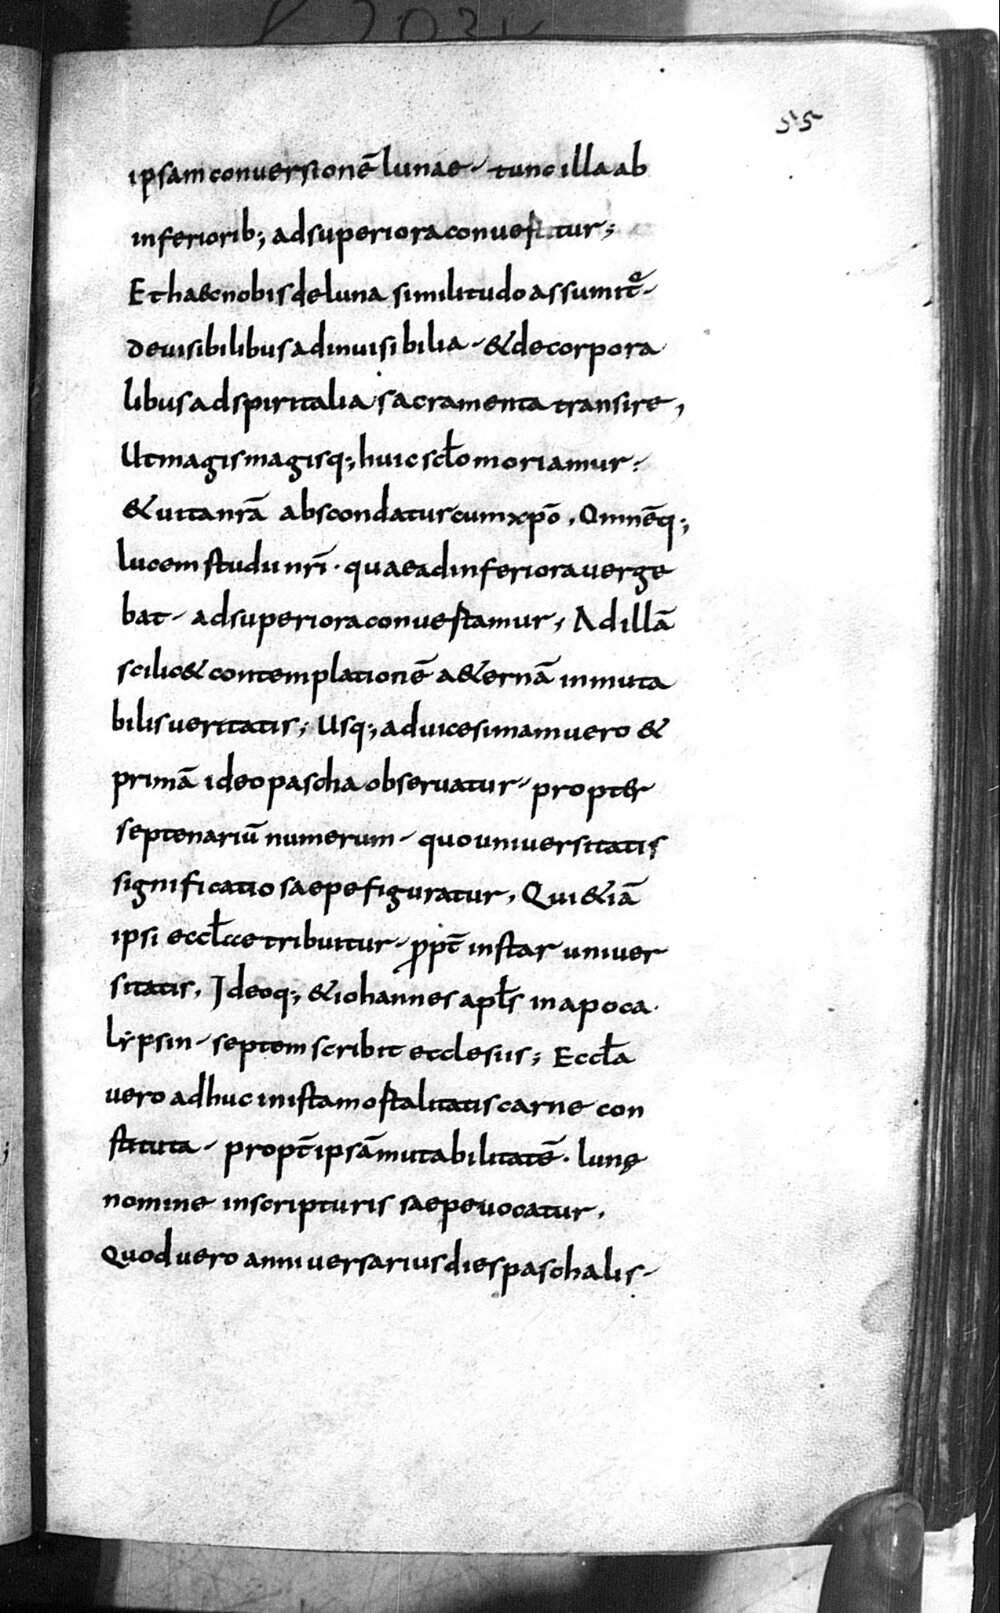 55
ipsam conuersionē lunae· tunc illa ab
inferiorib; ad superiora conuertitur;
Et haec nobis de luna similitudo assumit̄·
De uisibilibus ad inuisibilia· & de corpora
libus ad spiritalia sacramenta transire,
Ut magis magisq; huic sc̄lo moriamur·
& uita nr̄a abscondatur cum xp̄o, Omnēq;
lucem studii nr̄i· quae ad inferiora uerge
bat· ad superiora conuertamur; Ad illā
scilic& contemplationē a&ernā inmuta
bilis ueritatis; Usq; ad uicesimam uero &
primā ideo pascha obseruatur· propter
septenariū numerum· quo uniuersitatis
significatio saepe figuratur, Qui &iā
ipsi eccl̄ae tribuitur· ꝓpt̄ instar uniuer
sitatis, Ideoq; & iohannes apl̄s in apoca
lẏpsin· septem scribit ecclesiis; Eccl̄a
uero adhuc in ista mortalitatis carne con
stituta· propt̄ ipsā mutabilitatē· lunę
nomine in scripturis saepe uocatur,
Quod uero anniuersarius dies paschalis·